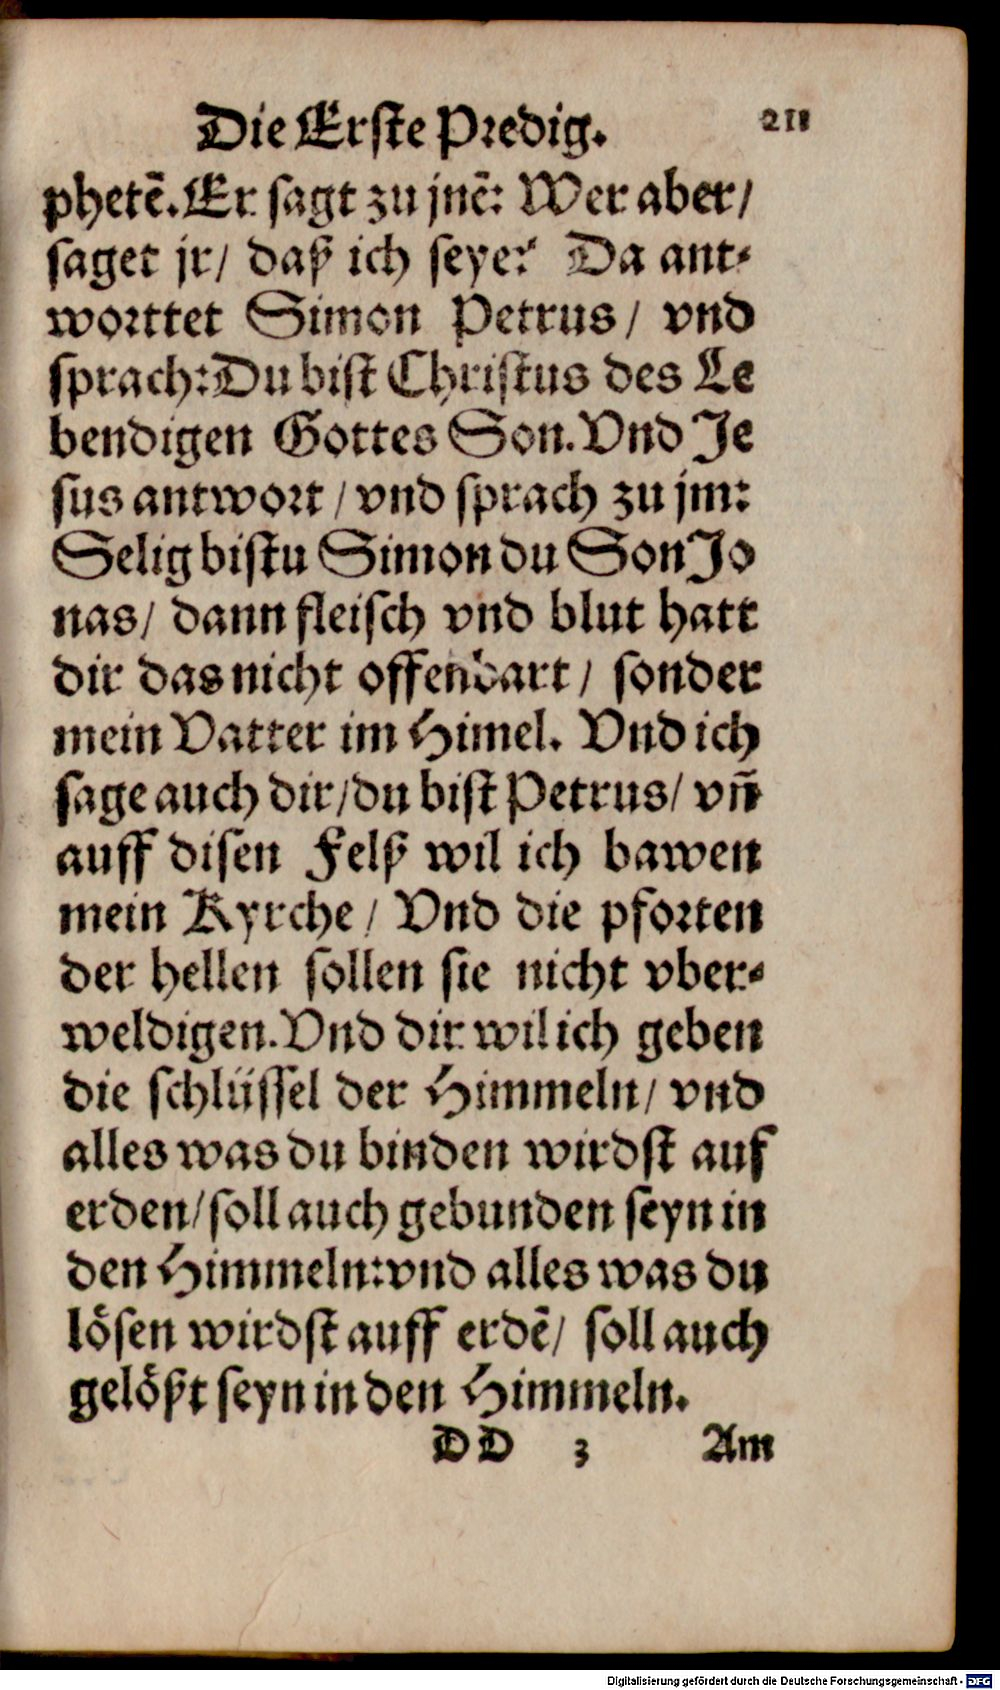 Die Erste Predig. 211
phetẽ. Er sagt zu jnẽ: Wer aber/
saget jr/ daß ich seye? Da ant-
worttet Simon Petrus/ vnd
sprach: Du bist Christus des Le
bendigen Gottes Son. Vnd Je
sus antwort/ vnd sprach zu jm:
Selig bistu Simon du Son Jo
nas/ dann fleisch vnd blut hatt
dir das nicht offenbart/ sonder
mein Vatter im Himel. Vnd ich
sage auch dir/ du bist Petrus/ vñ
auff disen Felß wil ich bawen
mein Kyrche/ Vnd die pforten
der hellen sollen sie nicht vber-
weldigen. Vnd dir wil ich geben
die schlüssel der Himmeln/ vnd
alles was du binden wirdst auf
erden/ soll auch gebunden seyn in
den Himmeln: vnd alles was du
lösen wirdst auff erdẽ/ soll auch
gelößt seyn in den Himmeln.
DD 3 Am
Digitalisierung gefördert durch die Deutsche Forschungsgemeinschaft - DFG